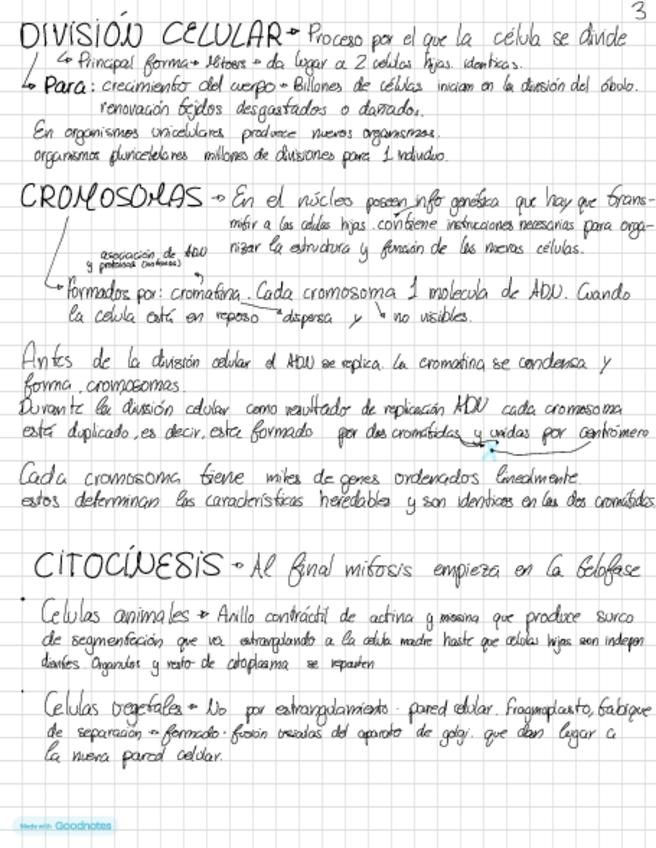 3
DIVISIÓN CELULAR → Proceso por el que la célula se divide
↳ Principal forma → Mitosis → da lugar a 2 celulas hijas identicas.
↳ Para: crecimiento del cuerpo → Billones de células inician en la división del óbulo.
renovación tejidos desgastados o dañados.
En organismos unicelulares produce nuevos organismos.
organismos pluricelulares millones de divisiones para 1 individuo.
CROMOSOMAS → En el núcleo poseen info genética que hay que trans-
mitir a las celulas hijas. contiene instrucciones necesarias para orga-
nizar la estructura y función de las nuevas células.
asociación de ADN
y proteinas (histonas)
↳ Formados por: cromatina. Cada cromosoma 1 molecula de ADN. Cuando
la celula está en reposo dispersa y no visibles.
Antes de la división celular el ADN se replica. La cromatina se condensa y
forma cromosomas.
Durante la división celular como resultado de replicación ADN cada cromosoma
está duplicado, es decir, esta formado por dos cromátidas y unidas por centrómero
Cada cromosoma tiene miles de genes ordenados linealmente
estos determinan las características heredables y son identicos en las dos cromátidas
CITOCÍNESIS → Al final mitosis empieza en la telofase
· Celulas animales → Anillo contráctil de actina y miosina que produce surco
de segmentación que va estrangulando a la celula madre hasta que celulas hijas son indepen
dientes Organulos y resto de citoplasma se reparten
· Celulas vegetales → No por estrangulamiento · pared celular. Fragmoplasto, tabique
de separación → formado · fusión vesiculas del aparato de golgi. que dan lugar a
la nueva pared celular.
Made with Goodnotes